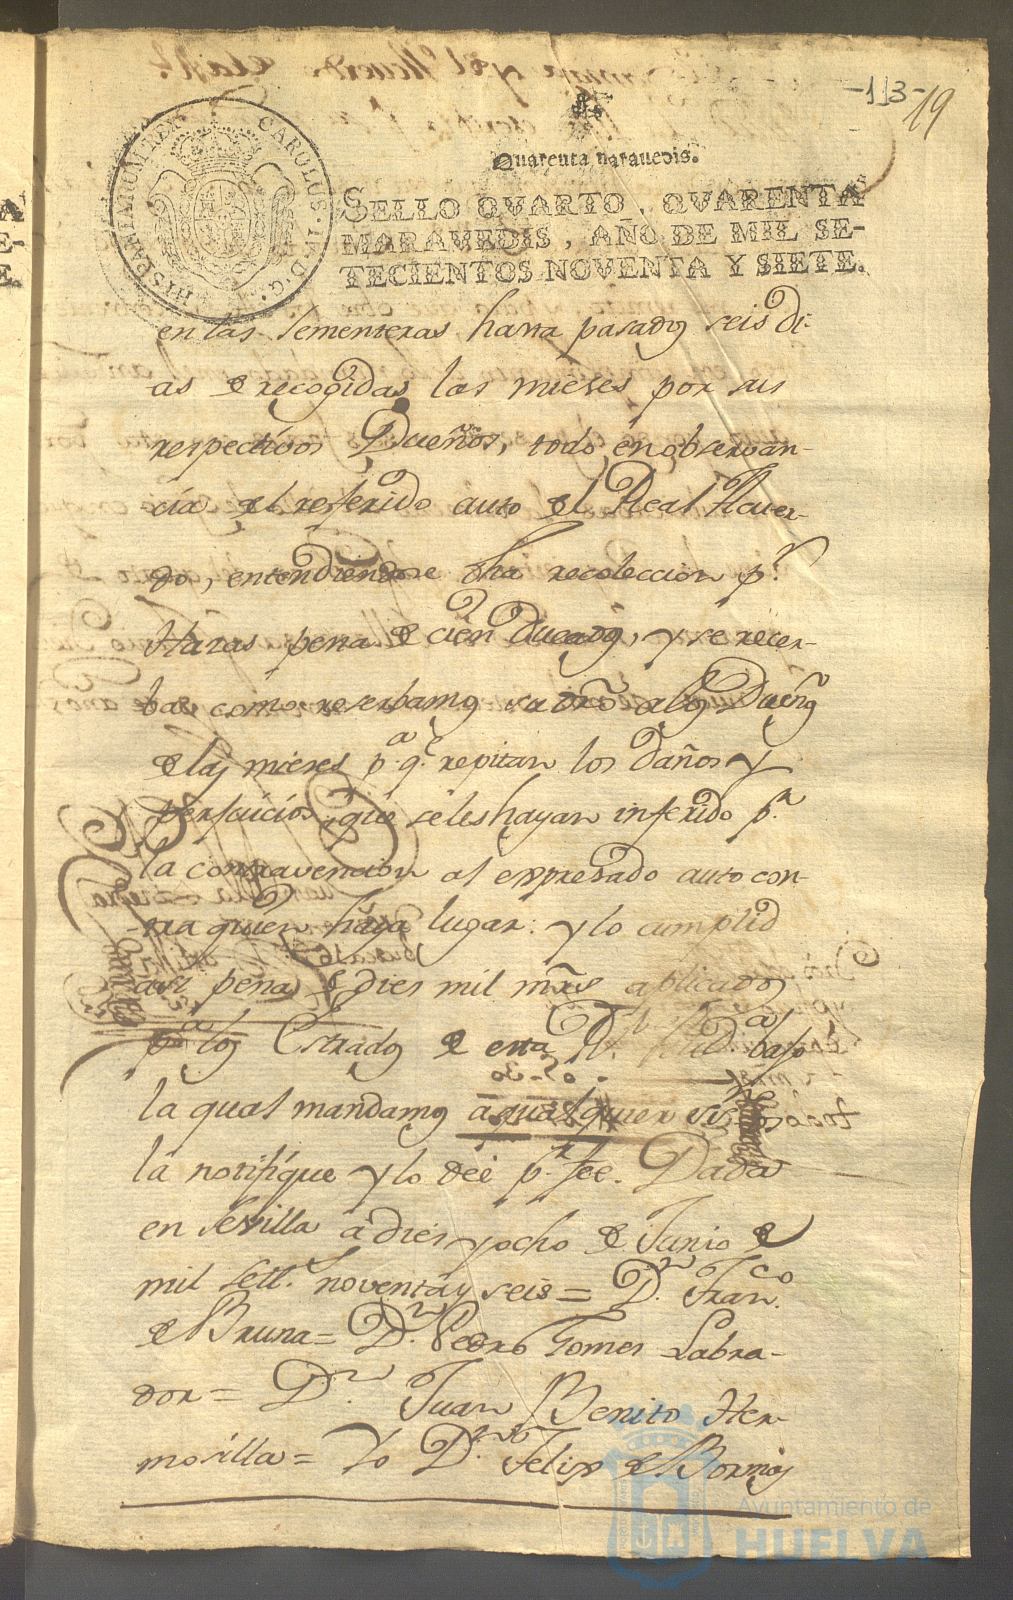 -113-
19
Quarenta maravedis.
SELLO QVARTO, QVARENTA
MARAVEDIS, AÑO DE MIL SE-
TECIENTOS NOVENTA Y SIETE.
CAROLUS · IV · D · G · HISPANIARUM REX
en las sementeras hasta pasados seis di-
as de recogidas las mieses por sus
respectivos Dueños, todo en observan-
cia del referido auto del Real Acuer-
do, entendiendose dha recolección pr.
Hazas pena de cien Ducados, y se reser-
ba como reserbamos su dro a los Dueños
de las mieses pa. qe. repitan los daños y
perjuicios que seles hayan inferido pr.
la contravencion al expresado auto con-
tra quien haya lugar: y lo cumplid
asi pena de dies mil mrs aplicados
pa los Estrados de esta Rl. Auda bajo
la qual mandamos a qualquier
la notifique y lo dee pr. fee. Dada
en Sevilla a dies y ocho de Junio de
mil sett.s noventa y seis = Dn. Franco.
de Bruna = Dn. Pedro Gomes Labra-
dor = Dn. Juan Benito Her-
mosilla = Yo Dn. Felix de Bormas
Ayuntamiento de
HUELVA